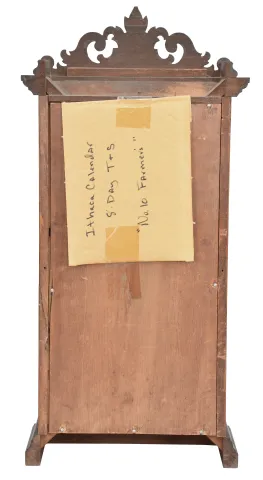 Ithaca Calendar
8 Day T+S
"No. 10 Farmers"